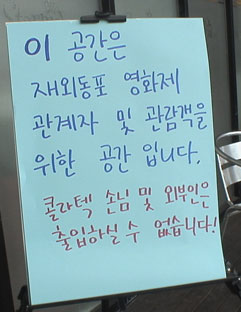 이 공간은
재외동포 영화제
관계자 및 관람객을
위한 공간 입니다.
콜라텍 손님 및 외부인은
출입하실 수 없습니다!